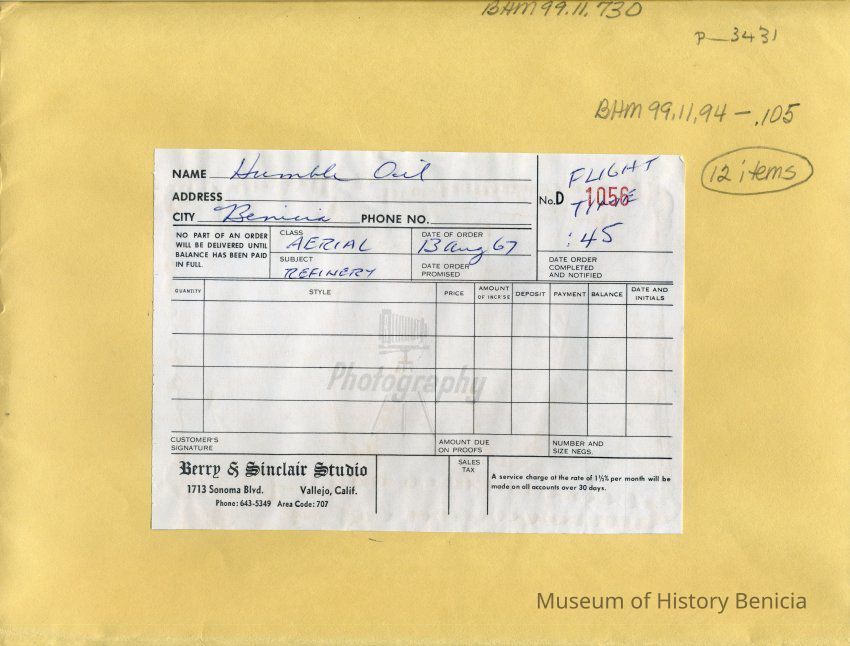 BHM 99.11.730
P-3431
BHM 99.11.94 - .105
12 items
NAME Humble Oil
ADDRESS
CITY Benicia PHONE NO.
No. D 1056
FLIGHT
TIME
:45
NO PART OF AN ORDER
WILL BE DELIVERED UNTIL
BALANCE HAS BEEN PAID
IN FULL.
CLASS
AERIAL
SUBJECT
REFINERY
DATE OF ORDER
13 Aug 67
DATE ORDER
PROMISED
DATE ORDER
COMPLETED
AND NOTIFIED
QUANTITY STYLE PRICE AMOUNT OF INCR'SE DEPOSIT PAYMENT BALANCE DATE AND INITIALS
Photography
CUSTOMER'S
SIGNATURE
AMOUNT DUE
ON PROOFS
NUMBER AND
SIZE NEGS.
Berry & Sinclair Studio
1713 Sonoma Blvd. Vallejo, Calif.
Phone: 643-5349 Area Code: 707
SALES
TAX
A service charge at the rate of 1½% per month will be
made on all accounts over 30 days.
Museum of History Benicia